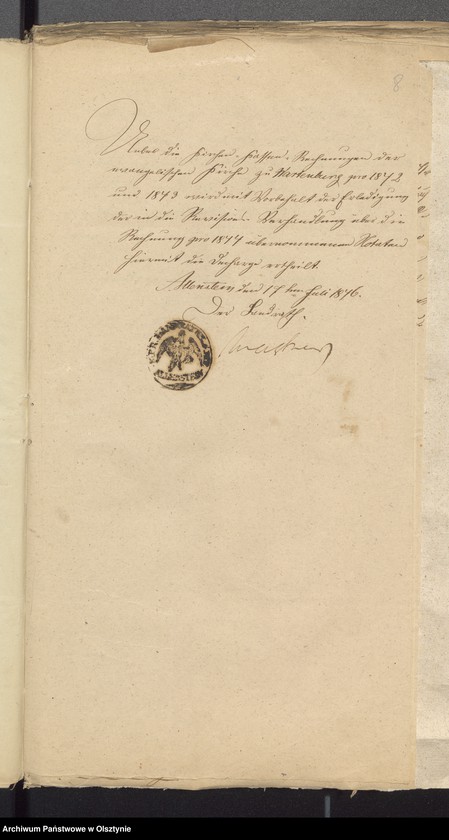 8
Ueber die Kirchen-Kassen-Rechnungen der
evangelischen Kirche zu Wartenburg pro 1842
und 1843 wird mit Vorbehalt der Erledigung
der in die Revisions-Verhandlung über die
Rechnung pro 1844 übernommenen Notaten
hiermit die Decharge ertheilt.
Allenstein den 17ten Juli 1846.
Der Landrath.
ALLENSTEIN
Archiwum Państwowe w Olsztynie